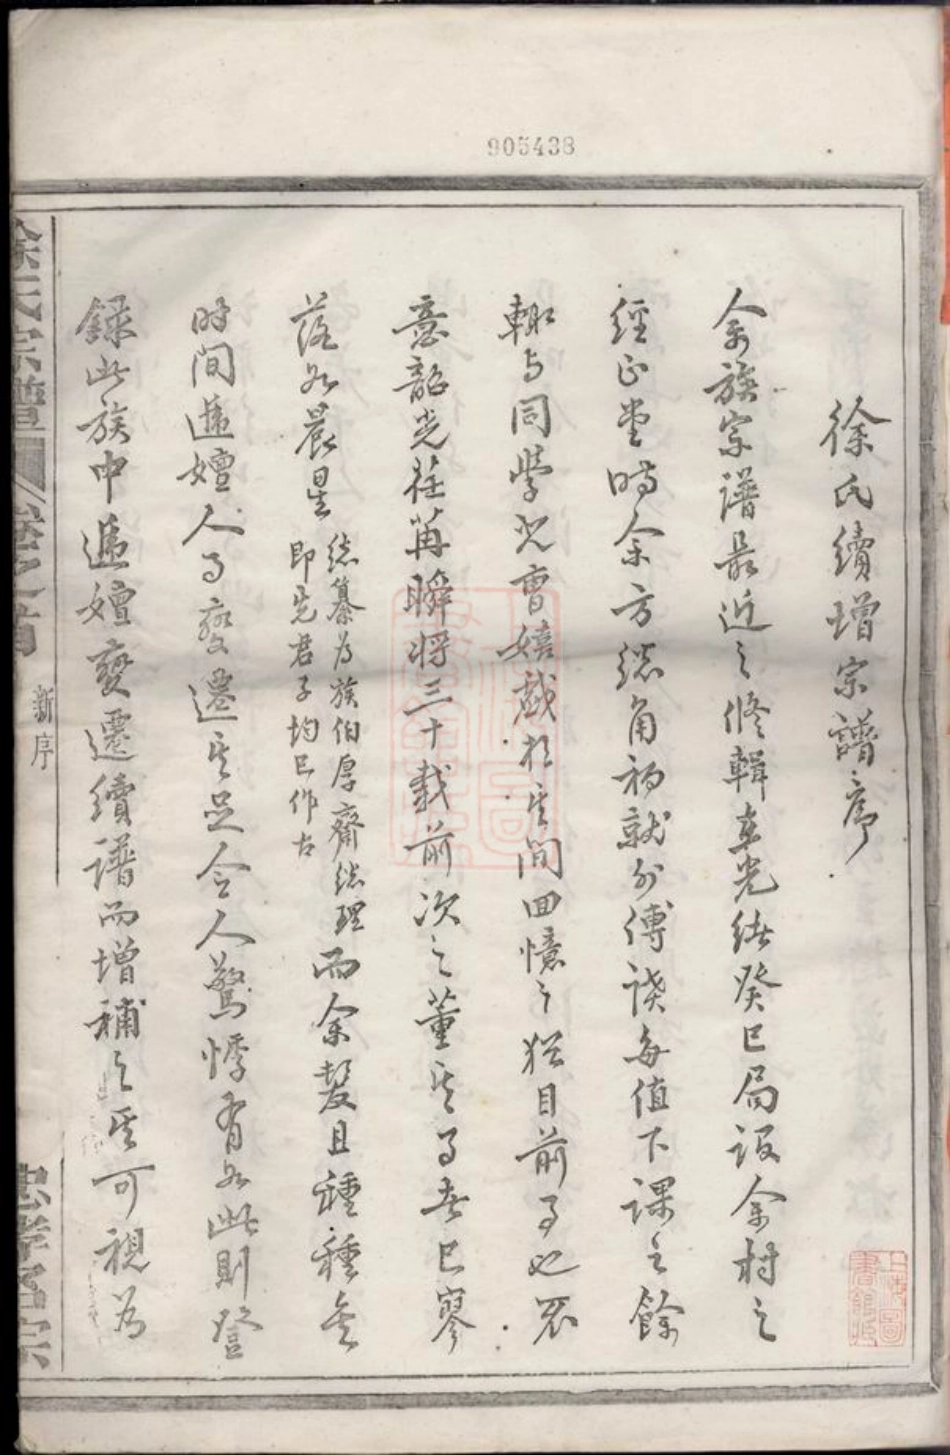 905438
徐氏續增宗譜序
余族宗譜最近之修輯在光緒癸巳局設余村之
經正堂時余方總角初就外傅讀每值下課之餘
輒与同學兒曹嬉戲於其間回憶之猶目前事也不
意韶光荏苒瞬將三十載前次之董其事者已寥
落如晨星
總纂为族伯厚齋總理
即先君子均已作古
而余髮且種種矣
时间遞嬗人事變遷其足令人驚悸有如此則登
録此族中遞嬗變遷續譜而增補之其可視为
徐氏宗譜
卷之首
新序
忠孝名宗
上海圖書館藏